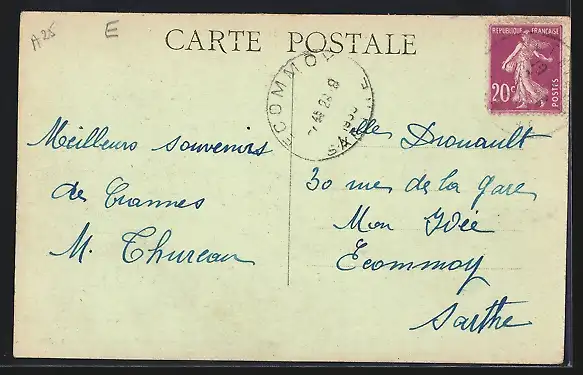 A25
E
CARTE POSTALE
RÉPUBLIQUE FRANÇAISE
20c
POSTES
ECOMMOY
SARTHE
Meilleurs souvenirs
de Crannes
M. Thureau
Mlle Drouault
30 rue de la Gare
Mon Idée
Ecommoy
Sarthe